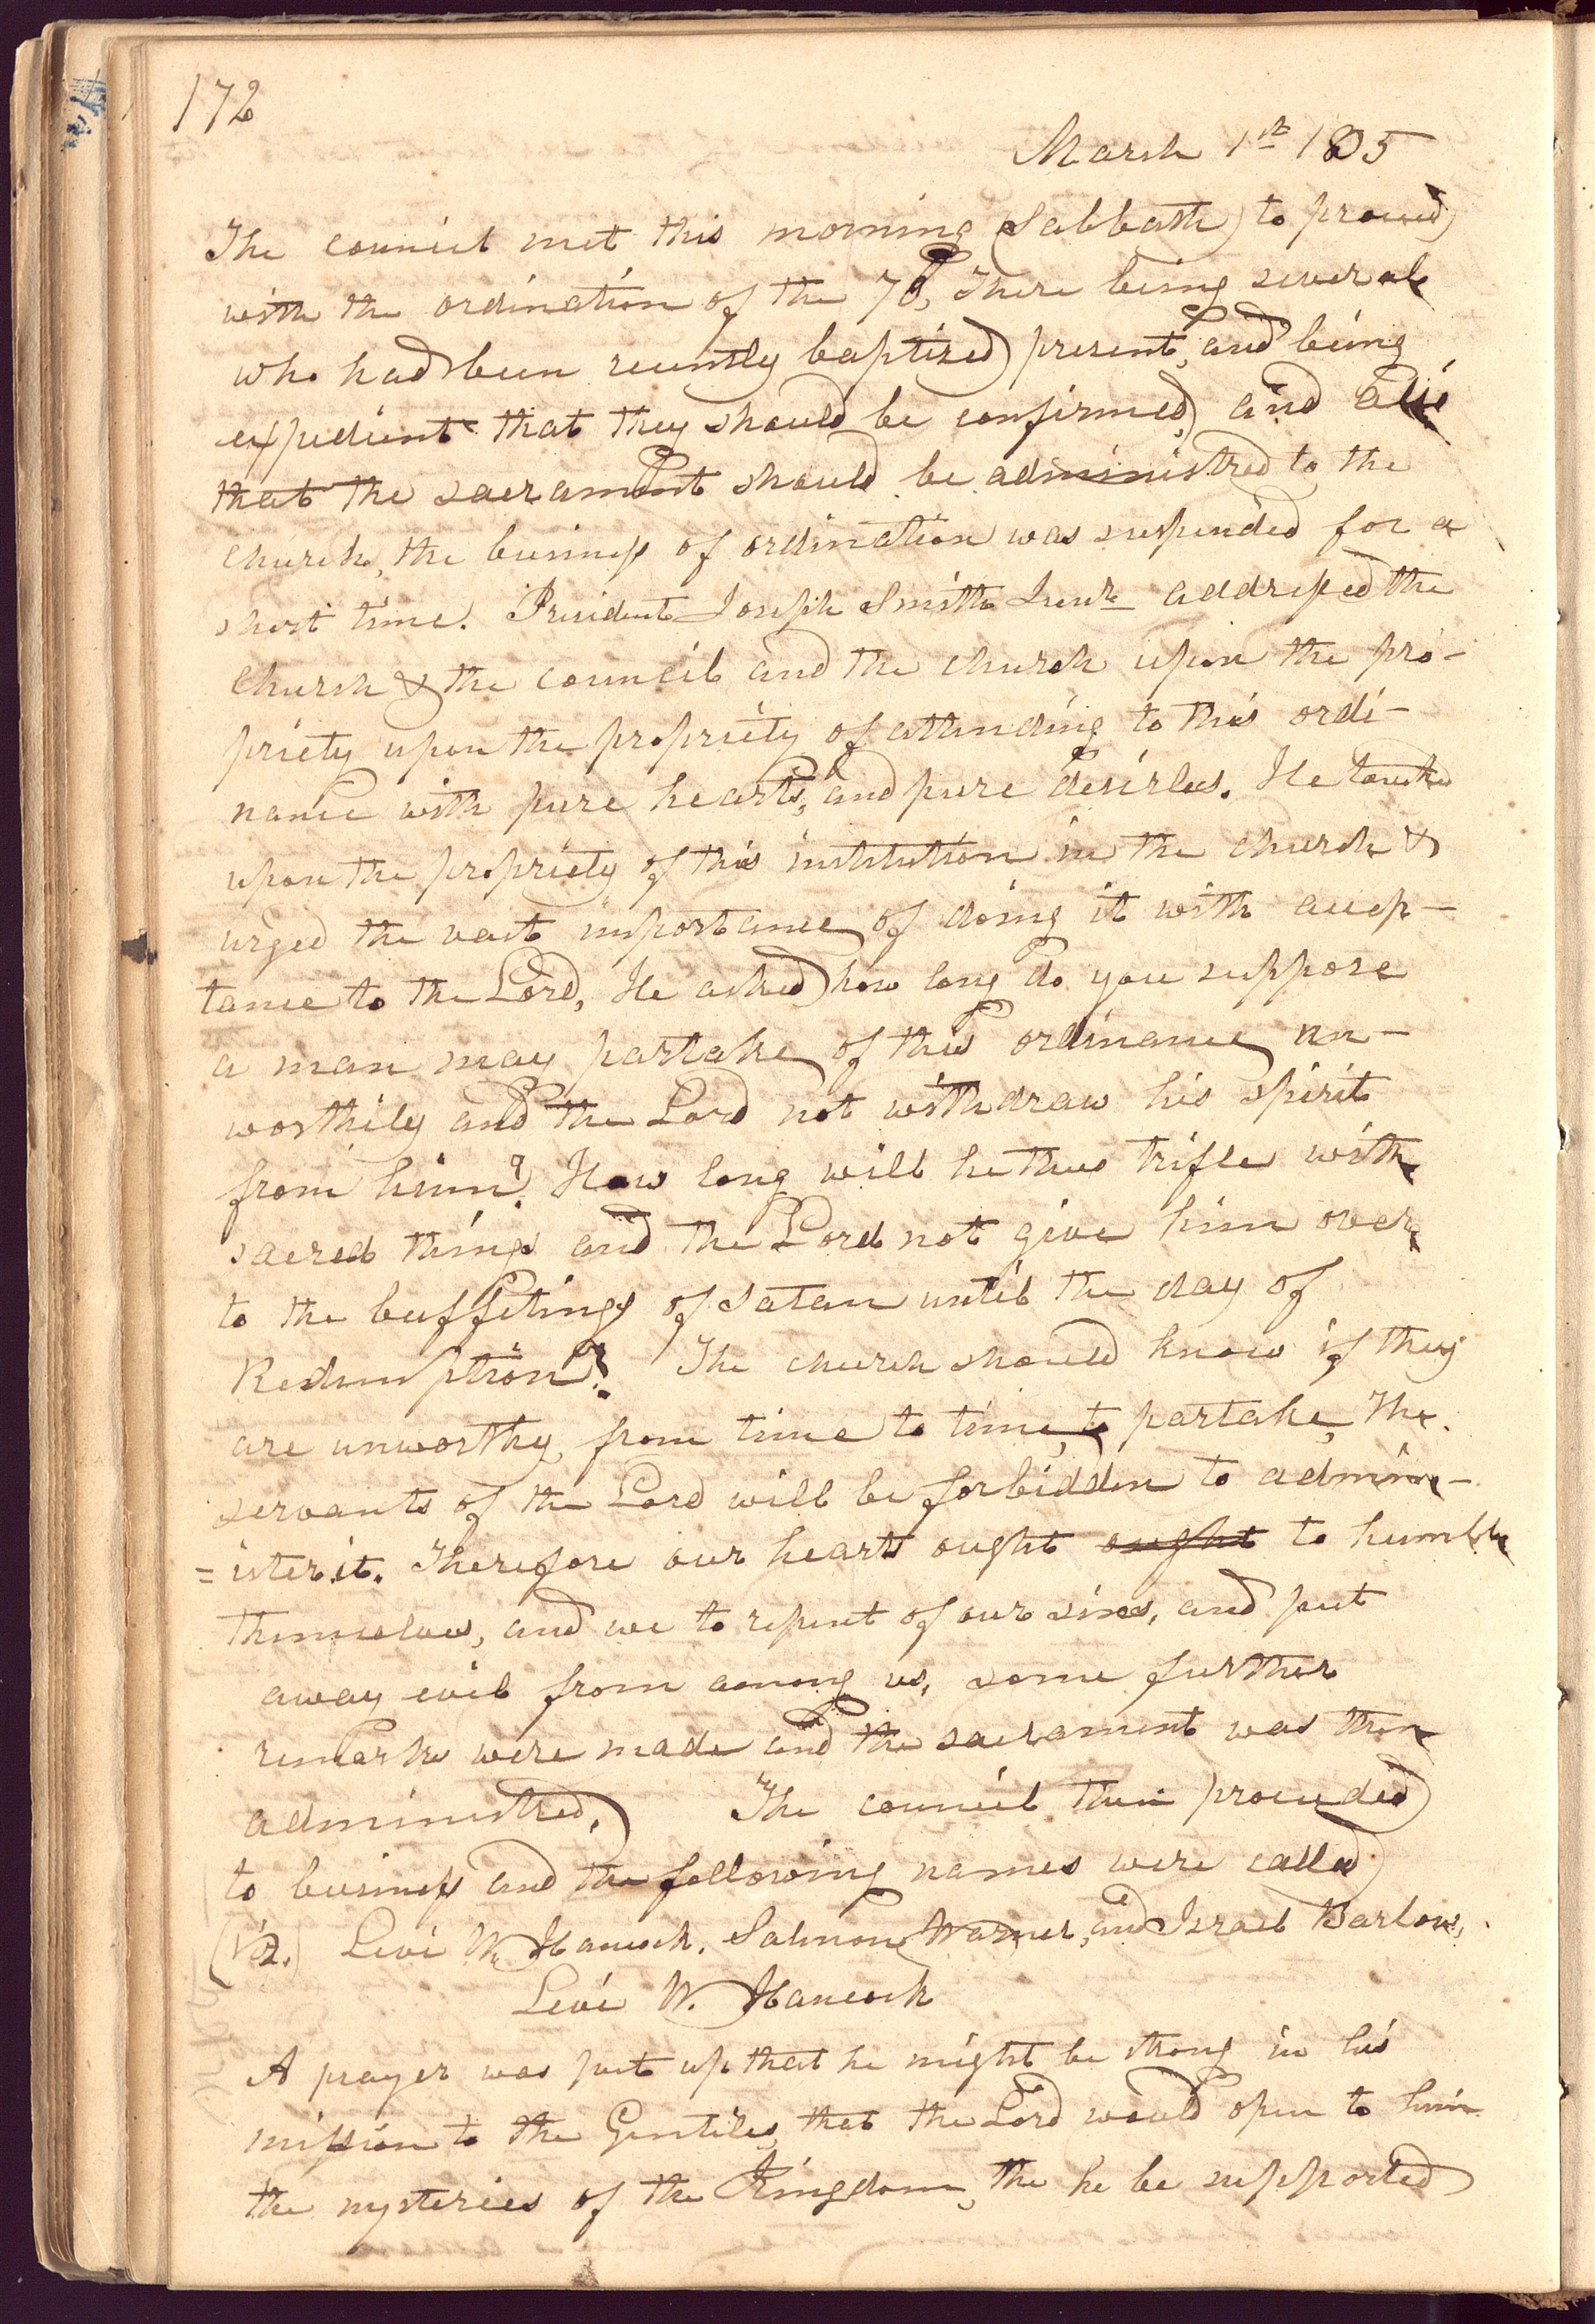 172
March 1st 1835
The council met this morning (Sabbath) to proceed
with the ordination of the 70, There being several
who had been recently baptized present, and being
expedient that they should be confirmed, and also
that the sacrament should be administred to the
church, the business of ordination was suspended for a
short time. President Joseph Smith Junr addressed the
church & the council and the church upon the pro-
priety upon the propriety of attending to this ordi-
nance with pure hearts, and pure desirles. He touched
upon the propriety of this institution in the church &
urged the vast importance of doing it with accep-
tance to the Lord, He asked how long do you suppose
a man may partake of this ordinance un-
worthily and the Lord not withdraw his spirit
from him? How long will he thus trifle with
sacred things and the Lord not give him over
to the buffetings of Satan until the day of
Redemption? The church should know if they
are unworthy, from time to time, to partake, The
servants of the Lord will be forbidden to admin-
=ister it. Therefore our hearts ought ought to humble
themselves, and we to repent of our sins, and put
away evil from among us, some further
remarks were made and the sacrament was then
administred. The council then proceeded
to business and the following names were called
(Viz.) Levi W. Hancock. Salmon Warner, and Israel Barlow,
Levi W. Hancock
A prayer was put up that he might be strong in his
mission to the Gentiles, that the Lord would open to him
the mysteries of the Kingdom, the he be supported